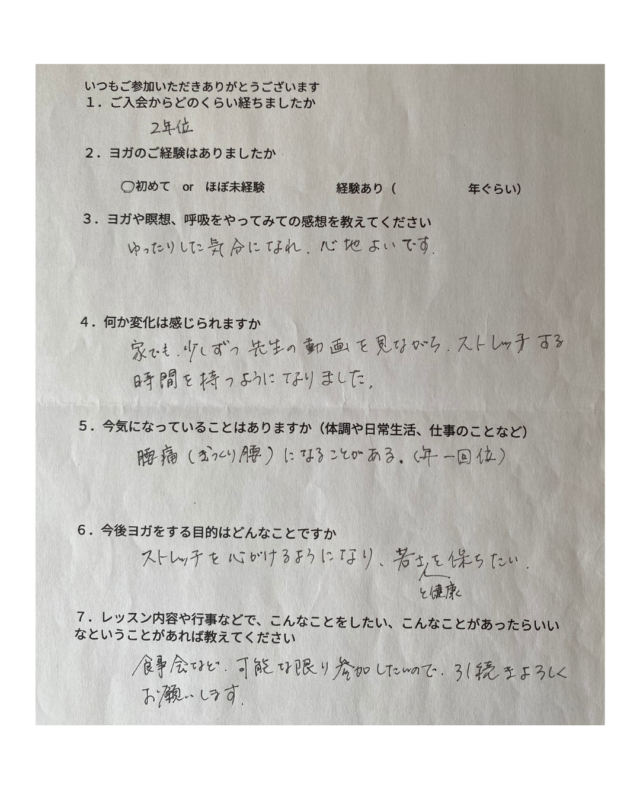 いつもご参加いただきありがとうございます
１．ご入会からどのくらい経ちましたか
２年位
２．ヨガのご経験はありましたか
◯初めて or ほぼ未経験 経験あり（ 年ぐらい）
３．ヨガや瞑想、呼吸をやってみての感想を教えてください
ゆったりした気分になれ、心地よいです。
４．何か変化は感じられますか
家でも、少しずつ先生の動画を見ながら、ストレッチする
時間を持つようになりました。
５．今気になっていることはありますか（体調や日常生活、仕事のことなど）
腰痛（ぎっくり腰）になることがある。（年一回位）
６．今後ヨガをする目的はどんなことですか
ストレッチを心がけるようになり、若さを保ちたい。
と健康
７．レッスン内容や行事などで、こんなことをしたい、こんなことがあったらいい
なということがあれば教えてください
食事会など、可能な限り参加したいので、引続きよろしく
お願いします。